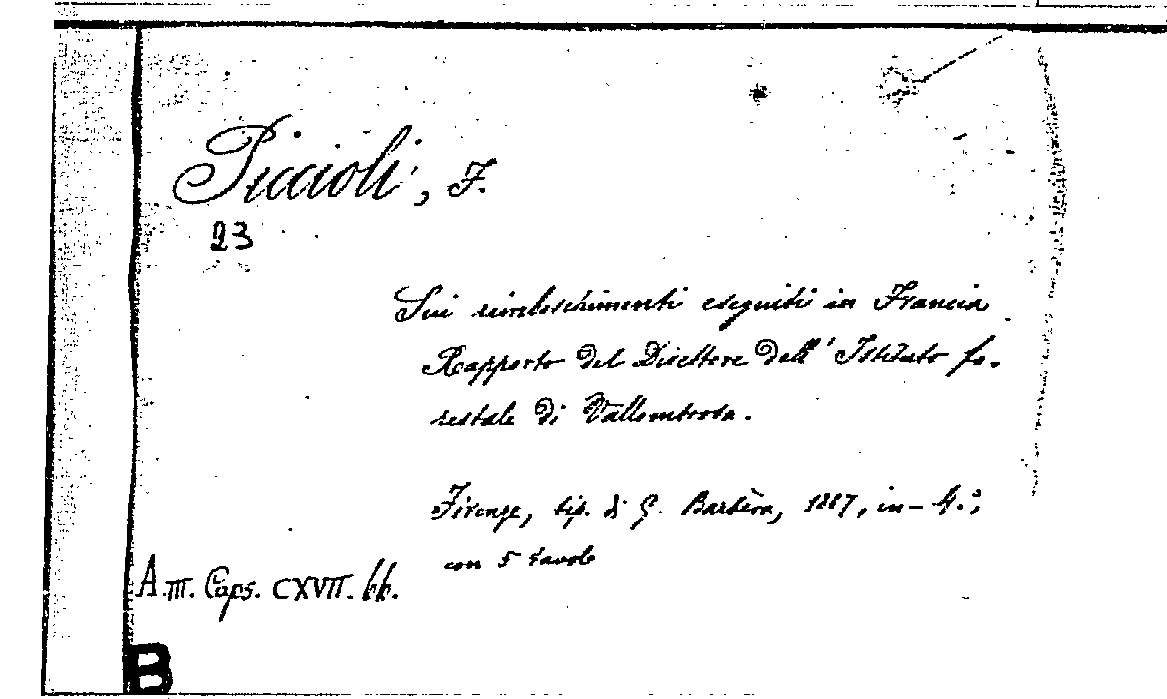 Piccioli, F.
23
Sui rimboschimenti eseguiti in Francia.
Rapporto del Direttore dell' Istituto fo-
restale di Vallombrosa.
Firenze, tip. di G. Barbèra, 1887, in-4.°;
con 5 tavole
A.III. Caps. CXVII. 66.
B